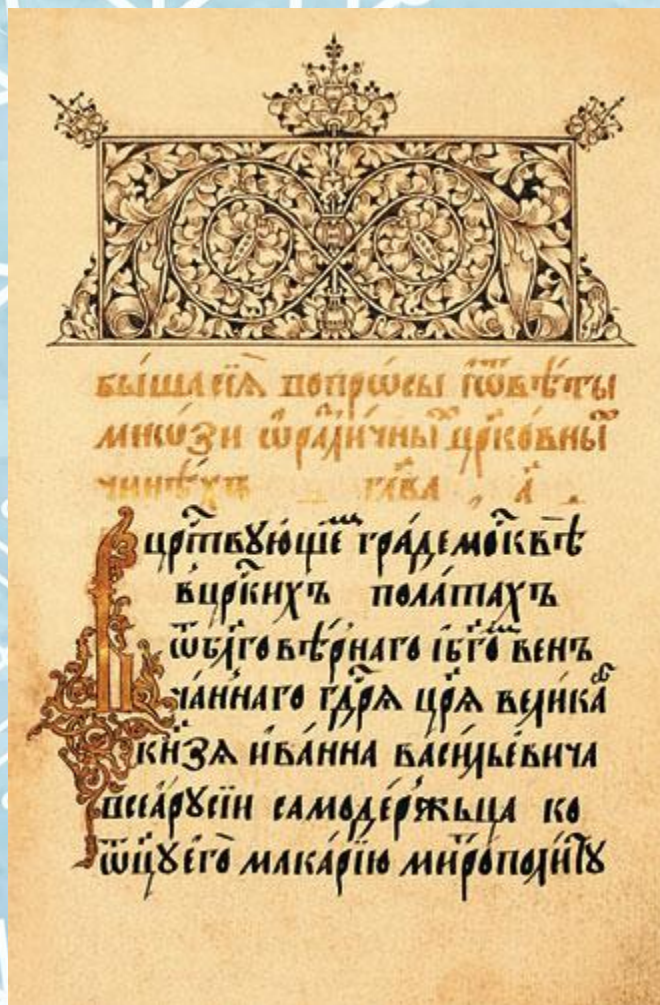 бы́ша сїѧ̀ вопро́сы и҆ѿвѣ́ты
мно́зи ѡ҆разли́чны црⷭ҇ко́вныⷯ
чинѣ́хъ глⷡ҇а а҃
Въ црⷭ҇твꙋ́ющеⷨ гра́де моⷭ҇квѣ̀
вцрⷭ҇кихъ пола́тахъ
ѿблⷢ҇овѣ́рнаго ібг҃о́ⷨ вен
ча́ннаго гдⷭ҇рѧ̀ цр҃ѧ̀ вели́каⷢ҇
кнѧ҃зѧ и҆ва́нна васи́лье́вича
всеѧ̀рꙋсі́и самоде́ржьца ко
ѻ҆ц҃ꙋ̀ е҆го̀ мака́рїю митрополи́тꙋ